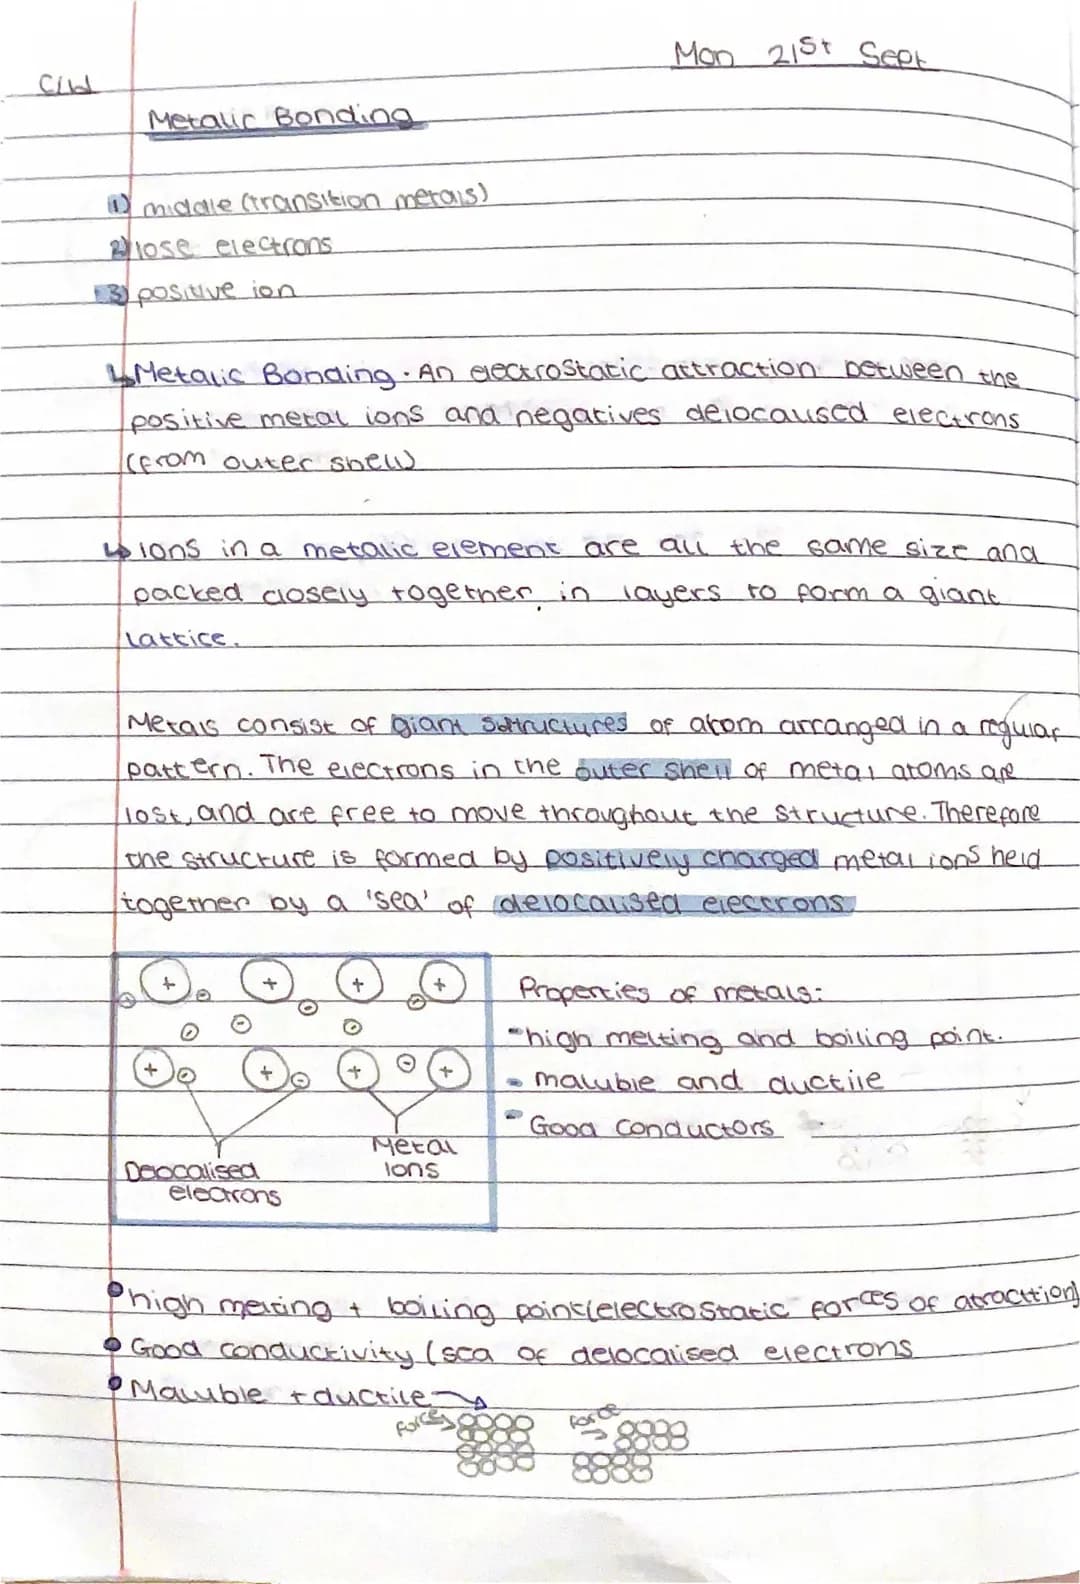 Mon 21st Sept
C/W
Metalic Bonding
1) middle (transition metals)
2) lose electrons
3) positive ion
↳ Metalic Bonding · An electrostatic attraction between the
positive metal ions and negatives delocalised electrons
(from outer shell)
↳ Ions in a metalic element are all the same size and
packed closely together in layers to form a giant
Lattice.
Metals consist of giant structures of atom arranged in a regular
pattern. The electrons in the outer shell of metal atoms are
lost, and are free to move throughout the structure. Therefore
the structure is formed by positively charged metal ions held
together by a 'sea' of delocalised electrons
+ - + - + - +
- - - -
+ - + - + - +
Deocalised
electrons
Metal
Ions
Properties of metals:
- high melting and boiling point.
- maluble and ductile
- Good conductors
• high melting + boiling point (electrostatic forces of atracttion)
• Good conductivity (sea of delocalised electrons
• Maluble + ductile →
force →
force →